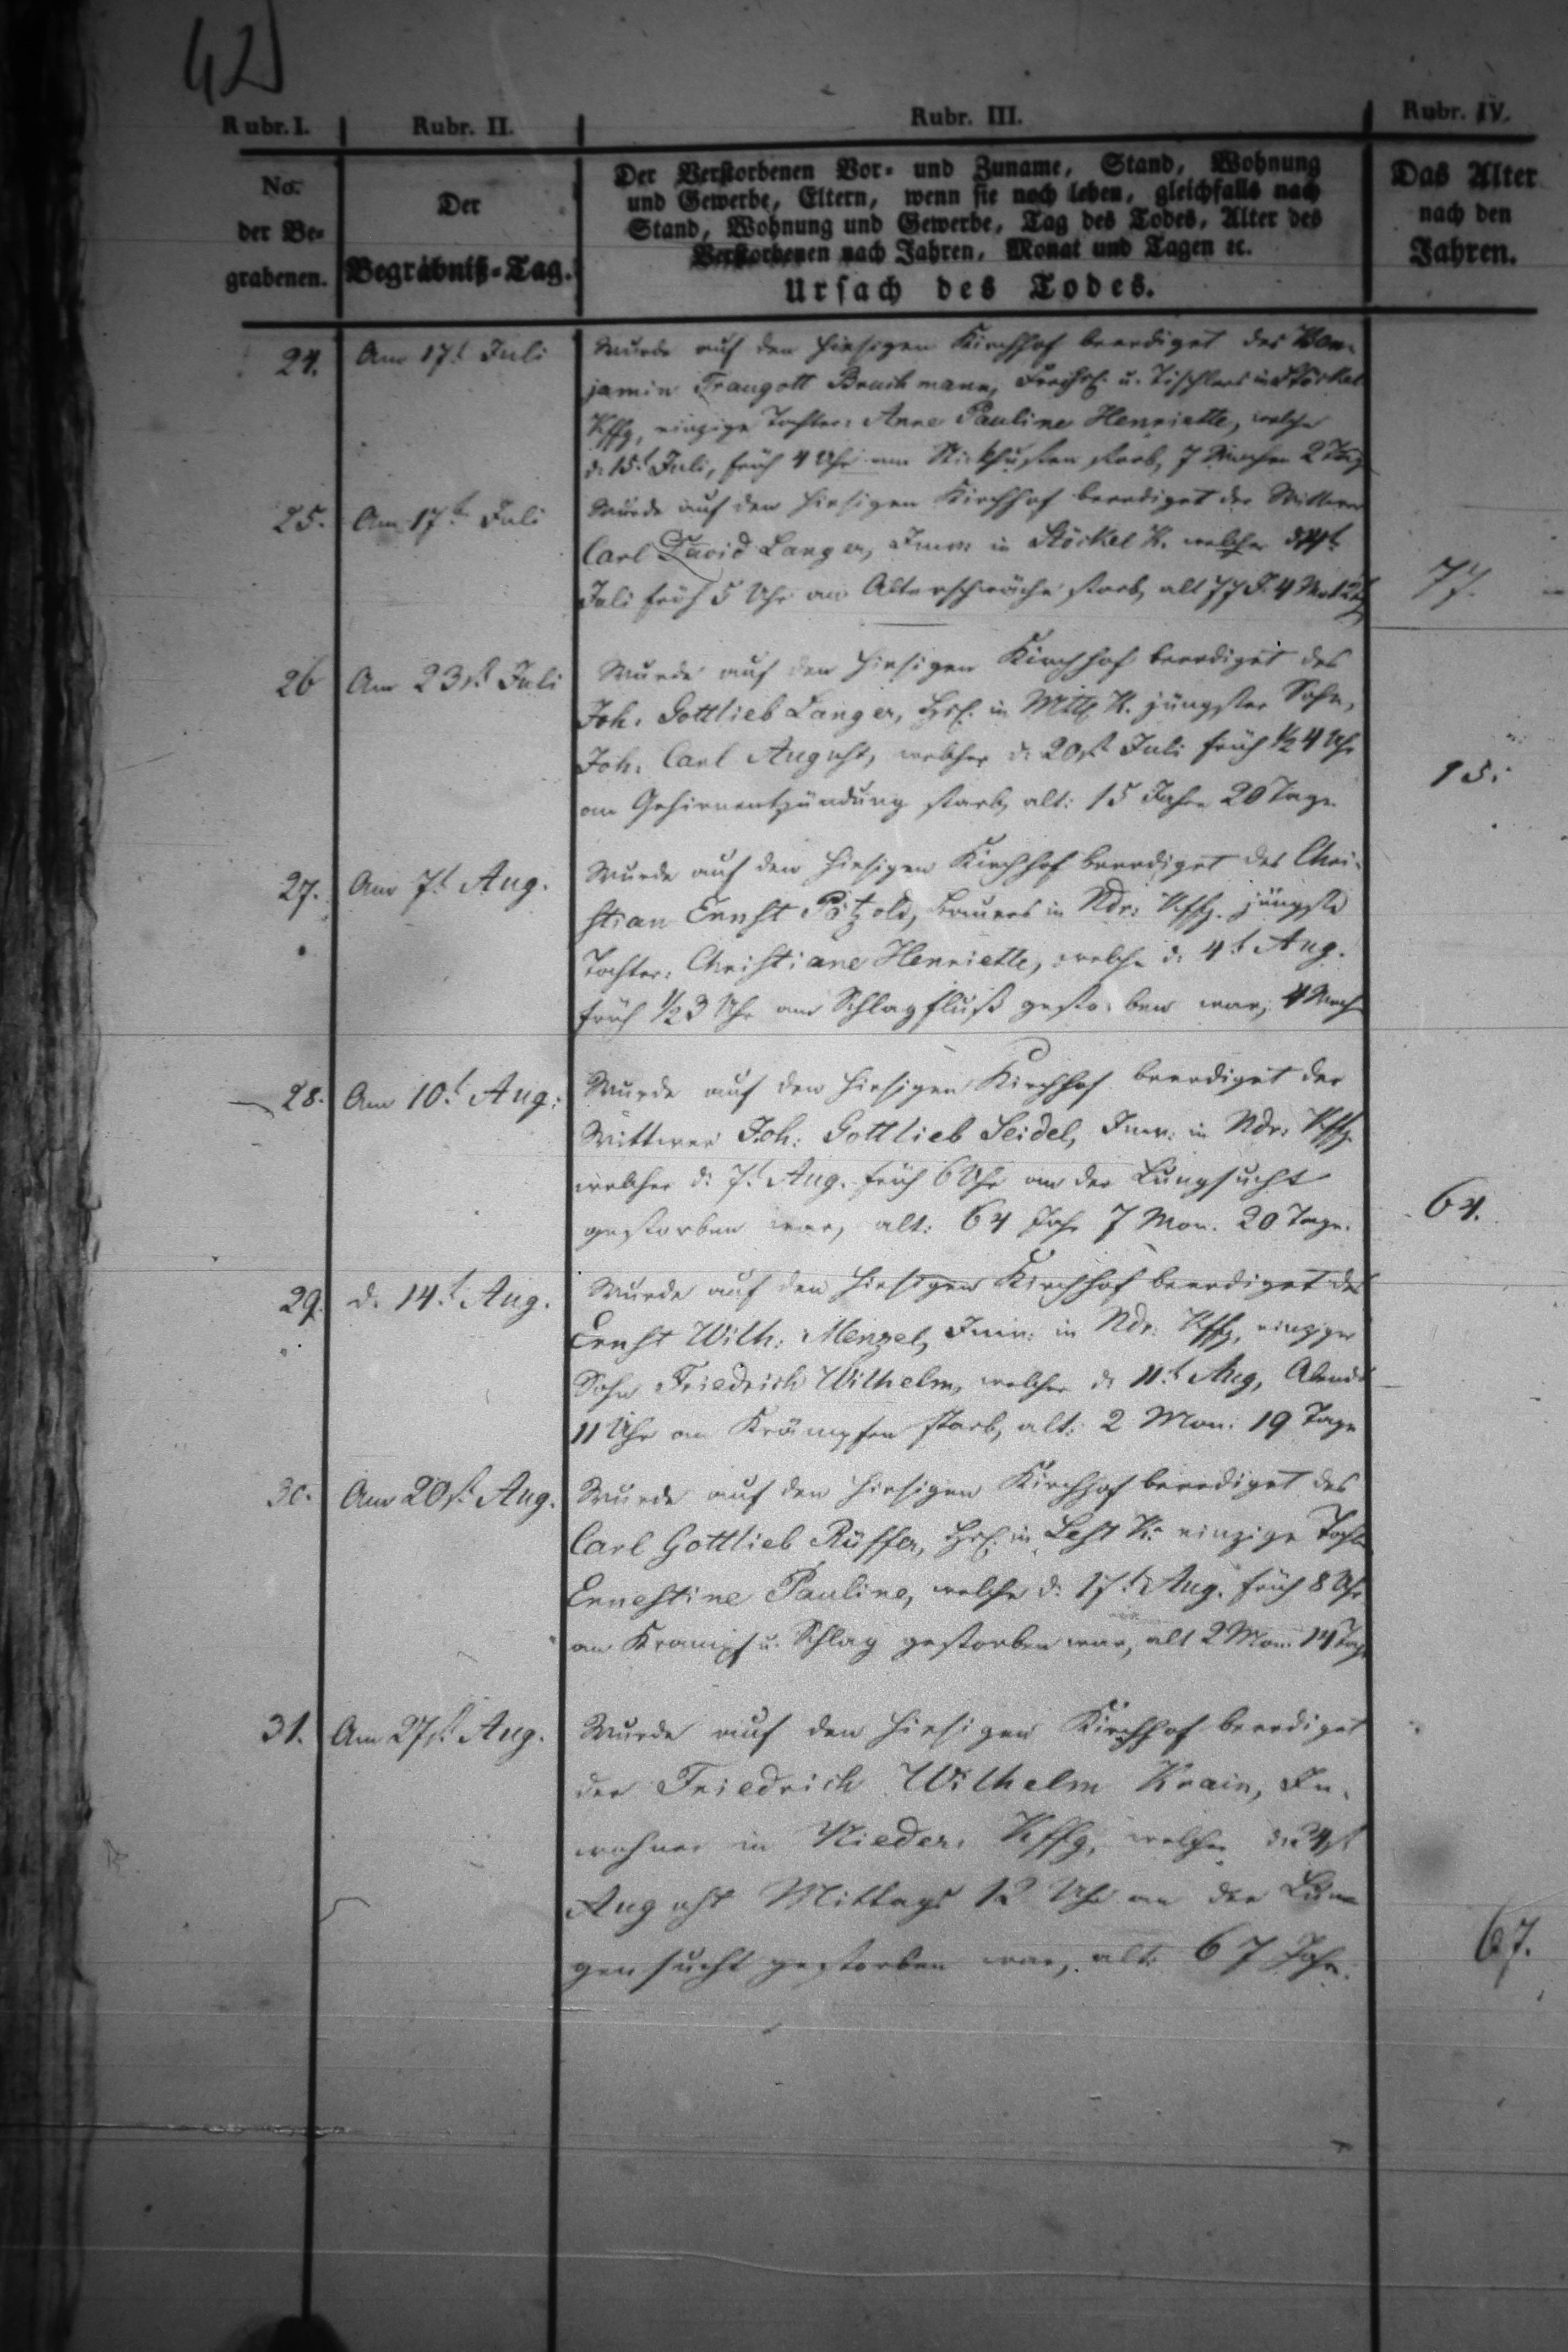 42
Rubr. I.
Rubr. II.
Rubr. III.
Rubr. IV.
No.
der Be-
grabenen.
Der
Begräbniß-Tag.
Der Verstorbenen Vor- und Zuname, Stand, Wohnung
und Gewerbe, Eltern, wenn sie noch leben, gleichfalls nach
Stand, Wohnung und Gewerbe, Tag des Todes, Alter des
Verstorbenen nach Jahren, Monat und Tagen ec.
Ursach des Todes.
Das Alter
nach den
Jahren.
24.
Am 17t Juli
Wurde auf den hiesigen Kirchhof beerdiget des Ben-
jamin Traugott Bruchmann, u. Tischlers in Stöckel
Kffg, einzige Tochter: Anne Pauline Henriette, welche
d. 15t Juli, früh 4 Uhr am Stickhusten starb, 7 Wochen 2 Tag
25.
Am 17t Juli
Wurde auf den hiesigen Kirchhof beerdiget der Wittwer
Carl David Langer, Inw: in Stöckel K. welcher
Juli früh 5 Uhr an Altersschwäche starb, alt 77 J. 4 Mon
77.
26
Am 23st Juli
Wurde auf den hiesigen Kirchhof beerdiget des
Joh. Gottlieb Langer, Hsl. in Mttl K. jüngster Sohn,
Joh. Carl August, welcher d. 20st Juli früh ½ 4 Uhr
an Gehirnentzündung starb, alt: 15 Jahre 20 Tage
15.
27.
Am 7t Aug.
Wurde auf den hiesigen Kirchhof beerdiget des Chri-
stian Ernst Pätzold, Bauers in Ndr: Kffg. jüngste
Tochter: Christiane Henriette, welche d. 4t Aug.
früh ½ 3 Uhr am Schlagfluß gestorben war, 4 Woch
28.
Am 10t Aug:
Wurde auf den hiesigen Kirchhof beerdiget der
Wittwer Joh: Gottlieb Seidel, Inw: in Ndr: Kffg
welcher d. 7t Aug. früh 6 Uhr an der Lungsucht
gestorben war, alt: 64 Jahr 7 Mon. 20 Tage.
64.
29.
d. 14t Aug.
Wurde auf den hiesigen Kirchhof beerdiget des
Ernst Wilh: Menzel, Inw: in Ndr: Kffg, einziger
Sohn Friedrich Wilhelm, welcher d. 11t Aug, Abends
11 Uhr an Krämpfen starb, alt: 2 Mon: 19 Tage
30.
Am 20st Aug.
Wurde auf den hiesigen Kirchhof beerdiget des
Carl Gottlieb Rüffer, Hsl. in K. einzige Tochter
Ernestine Pauline, welche d. 17t Aug. früh 8 Uhr
an Krampf u. Schlag gestorben war, alt 2 Mon. 14 Tage
31.
Am 27st Aug.
Wurde auf den hiesigen Kirchhof beerdiget
der Friedrich Wilhelm Krain, In-
wohner in Nieder: Kffg, welcher d. 24st
August Mittags 12 Uhr an der Lun-
gensucht gestorben war, alt: 67 Jahr.
67.